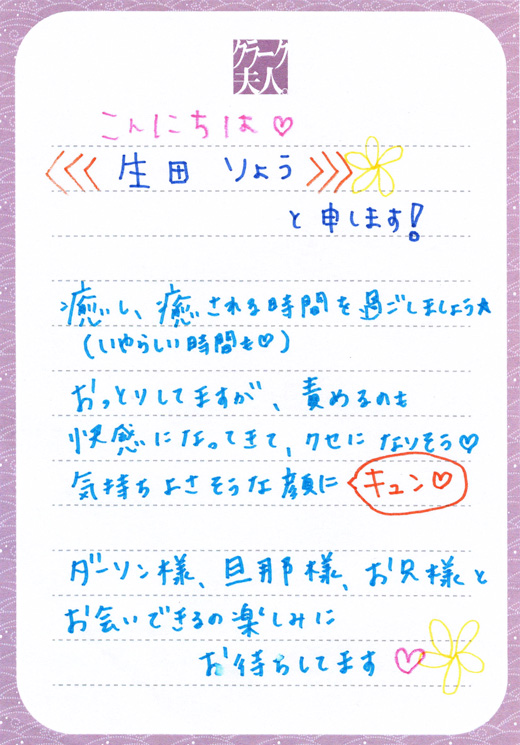 クラーク
夫人。
こんにちは♡
<<< 生田 りょう >>>
と申します!
癒し、癒される時間を過ごしましょう☆
(いやらしい時間も♡)
おっとりしてますが、責めるのも
快感になってきて、クセになりそう♡
気持ちよさそうな顔に キュン♡
ダーリン様、旦那様、お兄様と
お会いできるの楽しみに
お待ちしてます♡